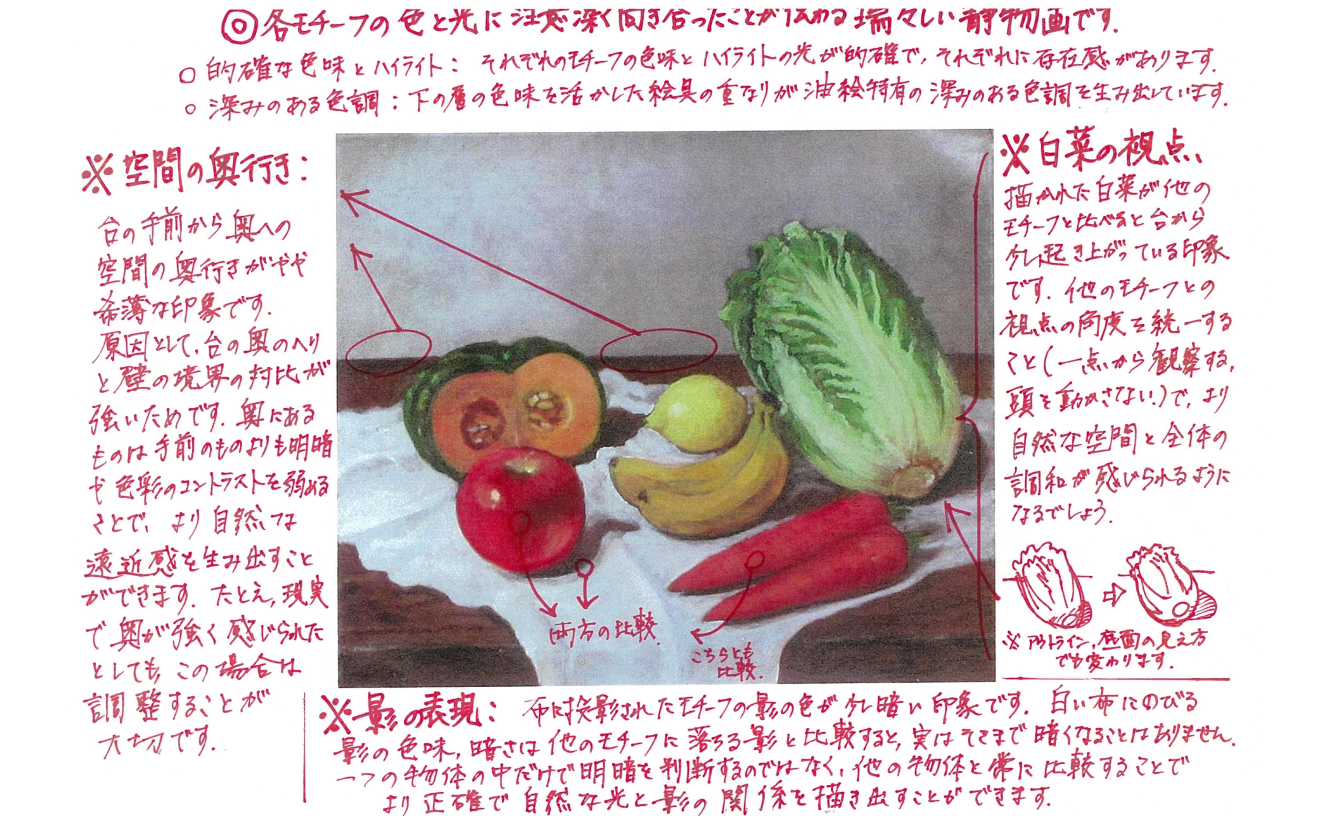 ◎各モチーフの色と光に注意深く向き合ったことが伝わる瑞々しい静物画です.
○ 的確な色味とハイライト: それぞれのモチーフの色味とハイライトの光が的確で, それぞれに存在感があります.
○ 深みのある色調: 下の層の色味を活かした絵具の重なりが油絵特有の深みのある色調を生み出しています.
※空間の奥行き:
台の手前から奥への
空間の奥行きがやや
希薄な印象です.
原因として, 台の奥のへり
と壁の境界の対比が
強いためです. 奥にある
ものは手前のものよりも明暗
や色彩のコントラストを弱める
ことで, より自然な
遠近感を生み出すこと
ができます. たとえ, 現実
で奥が強く感じられた
としても, この場合は
調整することが
大切です.
※白菜の視点,
描かれた白菜が他の
モチーフと比べると台から
少し起き上がっている印象
です. 他のモチーフとの
視点の角度を統一する
こと(一点から観察する,
頭を動かさない)で, より
自然な空間と全体の
調和が感じられるように
なるでしょう.
※ アウトライン, 底面の見え方
でも変わります.
両方の比較.
こちらとも
比較.
※影の表現: 布に投影されたモチーフの影の色が少し暗い印象です. 白い布にのびる
影の色味, 暗さは他のモチーフに落ちる影と比較すると, 実はそこまで暗くなることはありません.
一つの物体の中だけで明暗を判断するのではなく, 他の物体と常に比較することで
より正確で自然な光と影の関係を描き出すことができます.